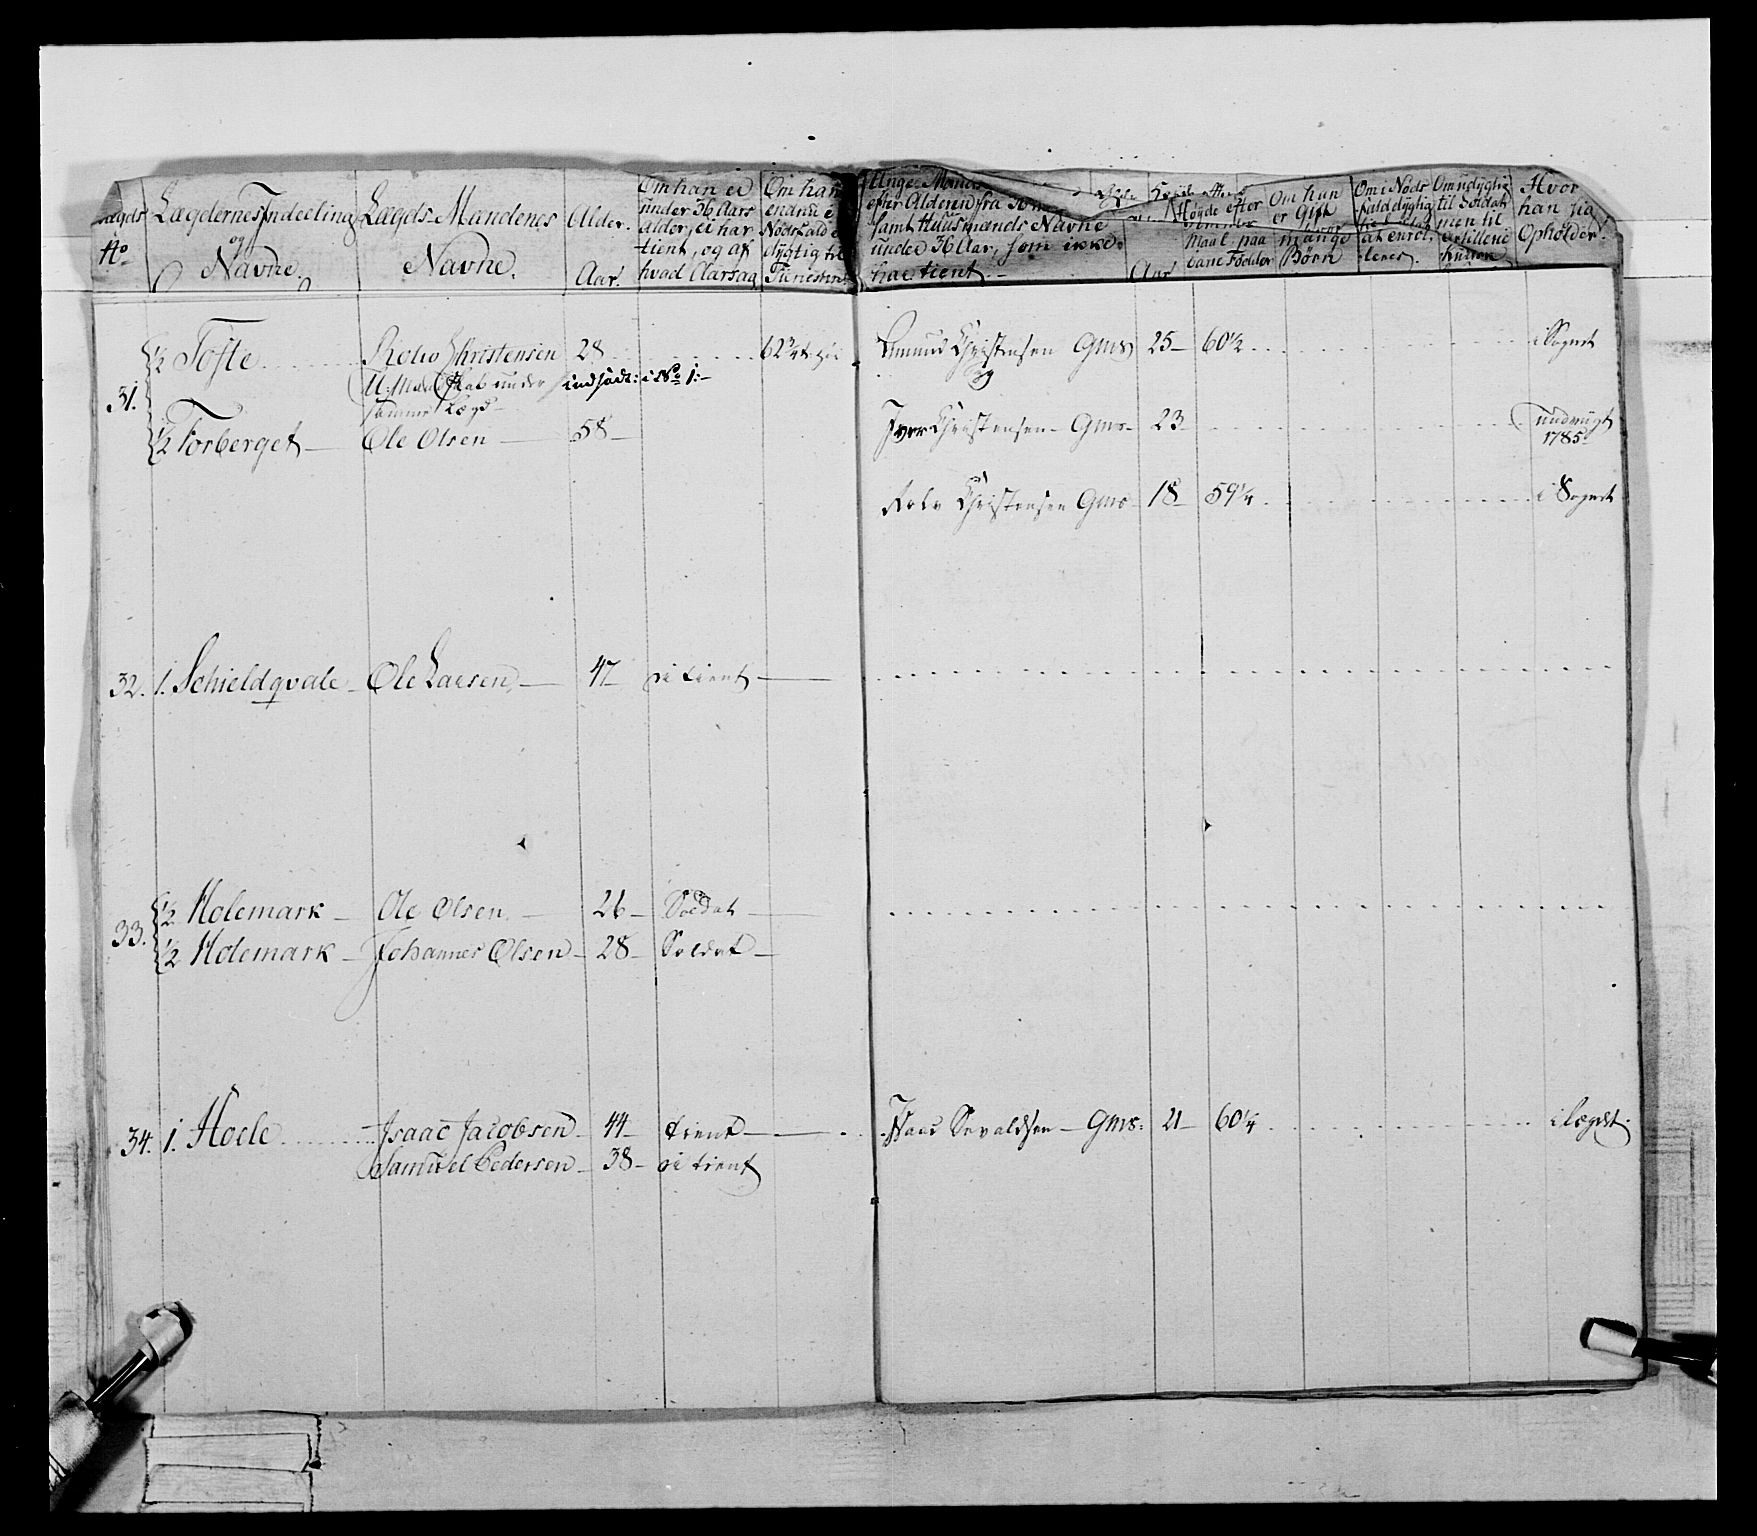 Lægds No
Lægdernes Indeeling og Navne.
Lægds Mandenes Navne.
Alder. Aar.
Om han ei under 36 Aars alder, ei har tient, og af hvad Aarsag
Om han endnu e Nødsfald dygtig til Tienesten
Unge Mands efter Alderen fra samt Huusmænds Navne under 36 Aar, som ikke har tient
Aar
Høyde efter Maal paa bare Fødder
Om han er Gift hvor mange Børn
Om i Nødsfald dygtig at enrolleres.
Om udygtig til Soldat men til Artillerie
Hvor han sig Opholder.
31. ½ Tofte Christensen 28 62¾ Amund Christensen Gms 25 60½ i Sognet
under indført: i No 1:
samme Lægd
½ Forberget Ole Olsen 58 Iver Christensen Gms 23 1785
Christensen Gms 18 59¼ i Sognet
32. 1. Schieldqvale Ole Larsen 47 ei tient
33. ½ Holemark Ole Olsen 26 Soldat
½ Holemark Johannes Olsen 28 Soldat
34. 1. Hoele Isaac Jacobsen 44 tient Sevaldsen Gms: 21 60¼ i Legdet
Samuel Pedersen 38 ei tient